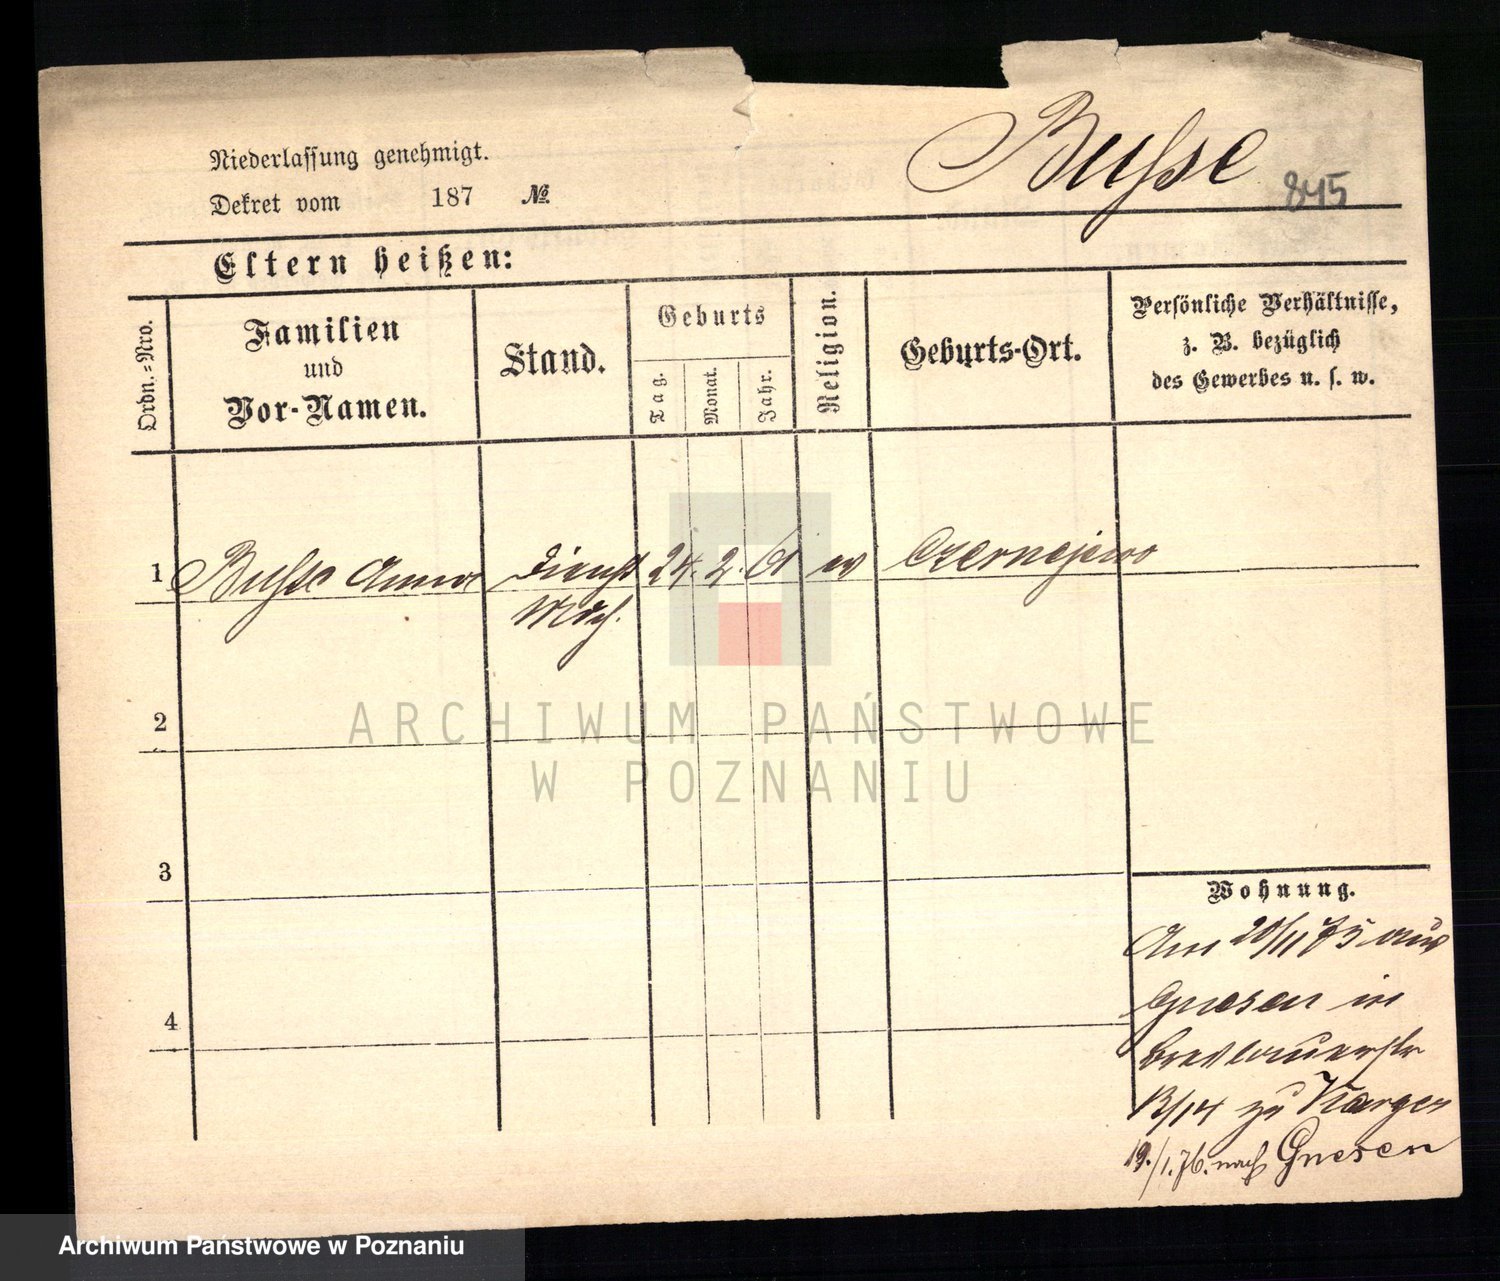 Busse
845
Niederlassung genehmigt.
Dekret vom 187 №
Eltern heißen:
Ordn.=Nro.
Familien
und
Vor-Namen.
Stand.
Geburts
Tag.
Monat.
Jahr.
Religion.
Geburts-Ort.
Persönliche Verhältnisse,
z. B. bezüglich
des Gewerbes u. s. w.
1 Busse Anna Dienst 24. 2. ev Czernejewo
2
3
4
ARCHIWUM PAŃSTWOWE
W POZNANIU
Wohnung.
Am 20/11 75 aus
Gnesen in
Breslauerstr
13/14 zu Karger
19./1.76. nach Gnesen
Archiwum Państwowe w Poznaniu